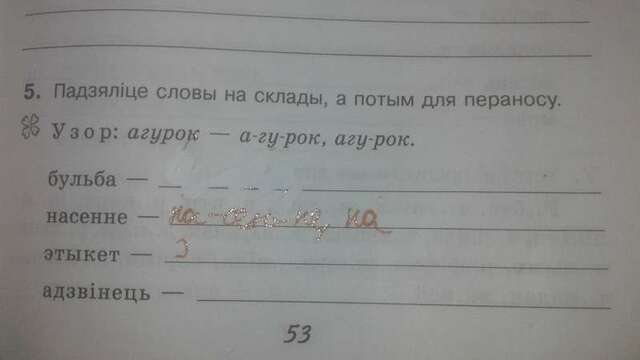 5. Падзяліце словы на склады, а потым для пераносу.
Узор: агурок — а-гу-рок, агу-рок.
бульба —
насенне — на-сен-не, на
этыкет — э
адзвінець —
53